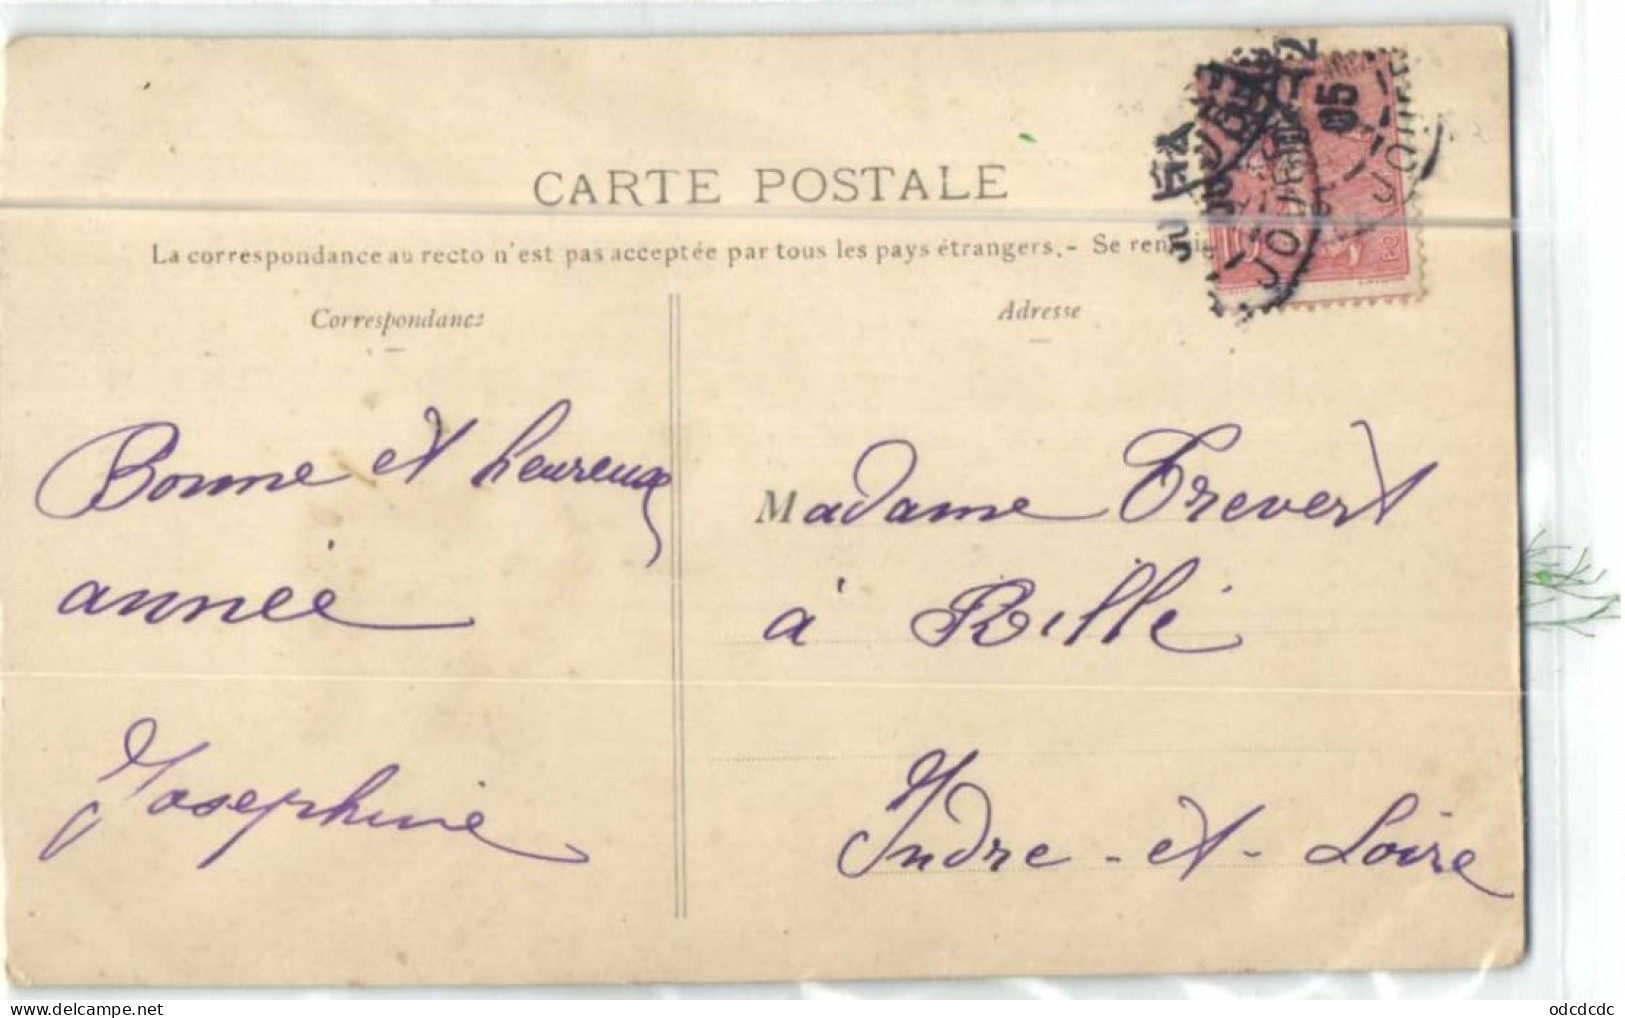 CARTE POSTALE
La correspondance au recto n'est pas acceptée par tous les pays étrangers. - Se
Correspondance
Adresse
Bonne et heureuse
année
Josephine
Madame Trevert
à Rillé
Indre-et-Loire
10
05
odcdcdc